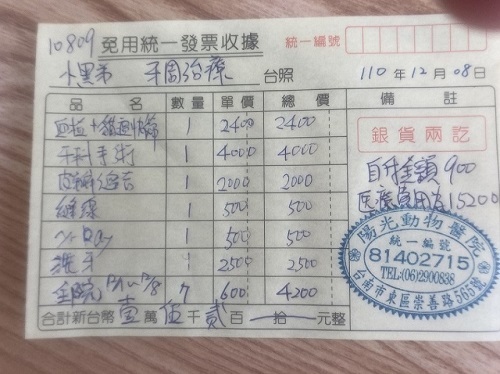 10809 免用統一發票收據 統一編號
小黑弟 牙周治療 台照 110年12月08日
品名 數量 單價 總價 備註
1 2400 2400
牙科手術 1 4000 4000
1 2000 2000
縫線 1 500 500
X-Ray 1 500 500
拔牙 1 2500 2500
住院 7 600 4200
合計新台幣壹萬伍千貳百 拾 元整
銀貨兩訖
自付金額900
医療費用為15200
陽光動物醫院
統一編號
81402715
TEL:(06)2900838
台南市東區崇善路565號